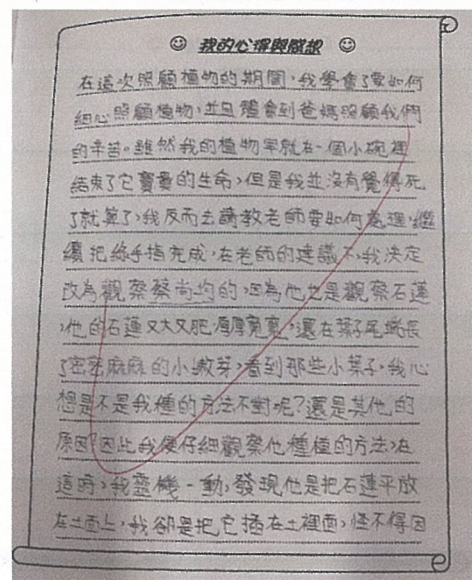 我的心得與感想
在這次照顧植物的期間，我學會了要如何
細心照顧植物，並且體會到爸媽照顧我們
的辛苦。雖然我的植物早就在一個小碗裡
結束了它寶貴的生命，但是我並沒有覺得死
了就算了，我反而去請教老師要如何處理，繼
續把綠手指完成，在老師的建議下，我決定
改為觀察蔡尚均的，因為他也是觀察石蓮
，他的石蓮又大又肥，厚厚寬寬，還在葉子尾端長
了密密麻麻的小嫩芽，看到那些小葉子，我心
想是不是我種的方法不對呢？還是其他的
原因？因此我便仔細觀察他種植的方法，在
這時，我靈機一動，發現他是把石蓮平放
在土面上，我卻是把它插在土裡面，怪不得因